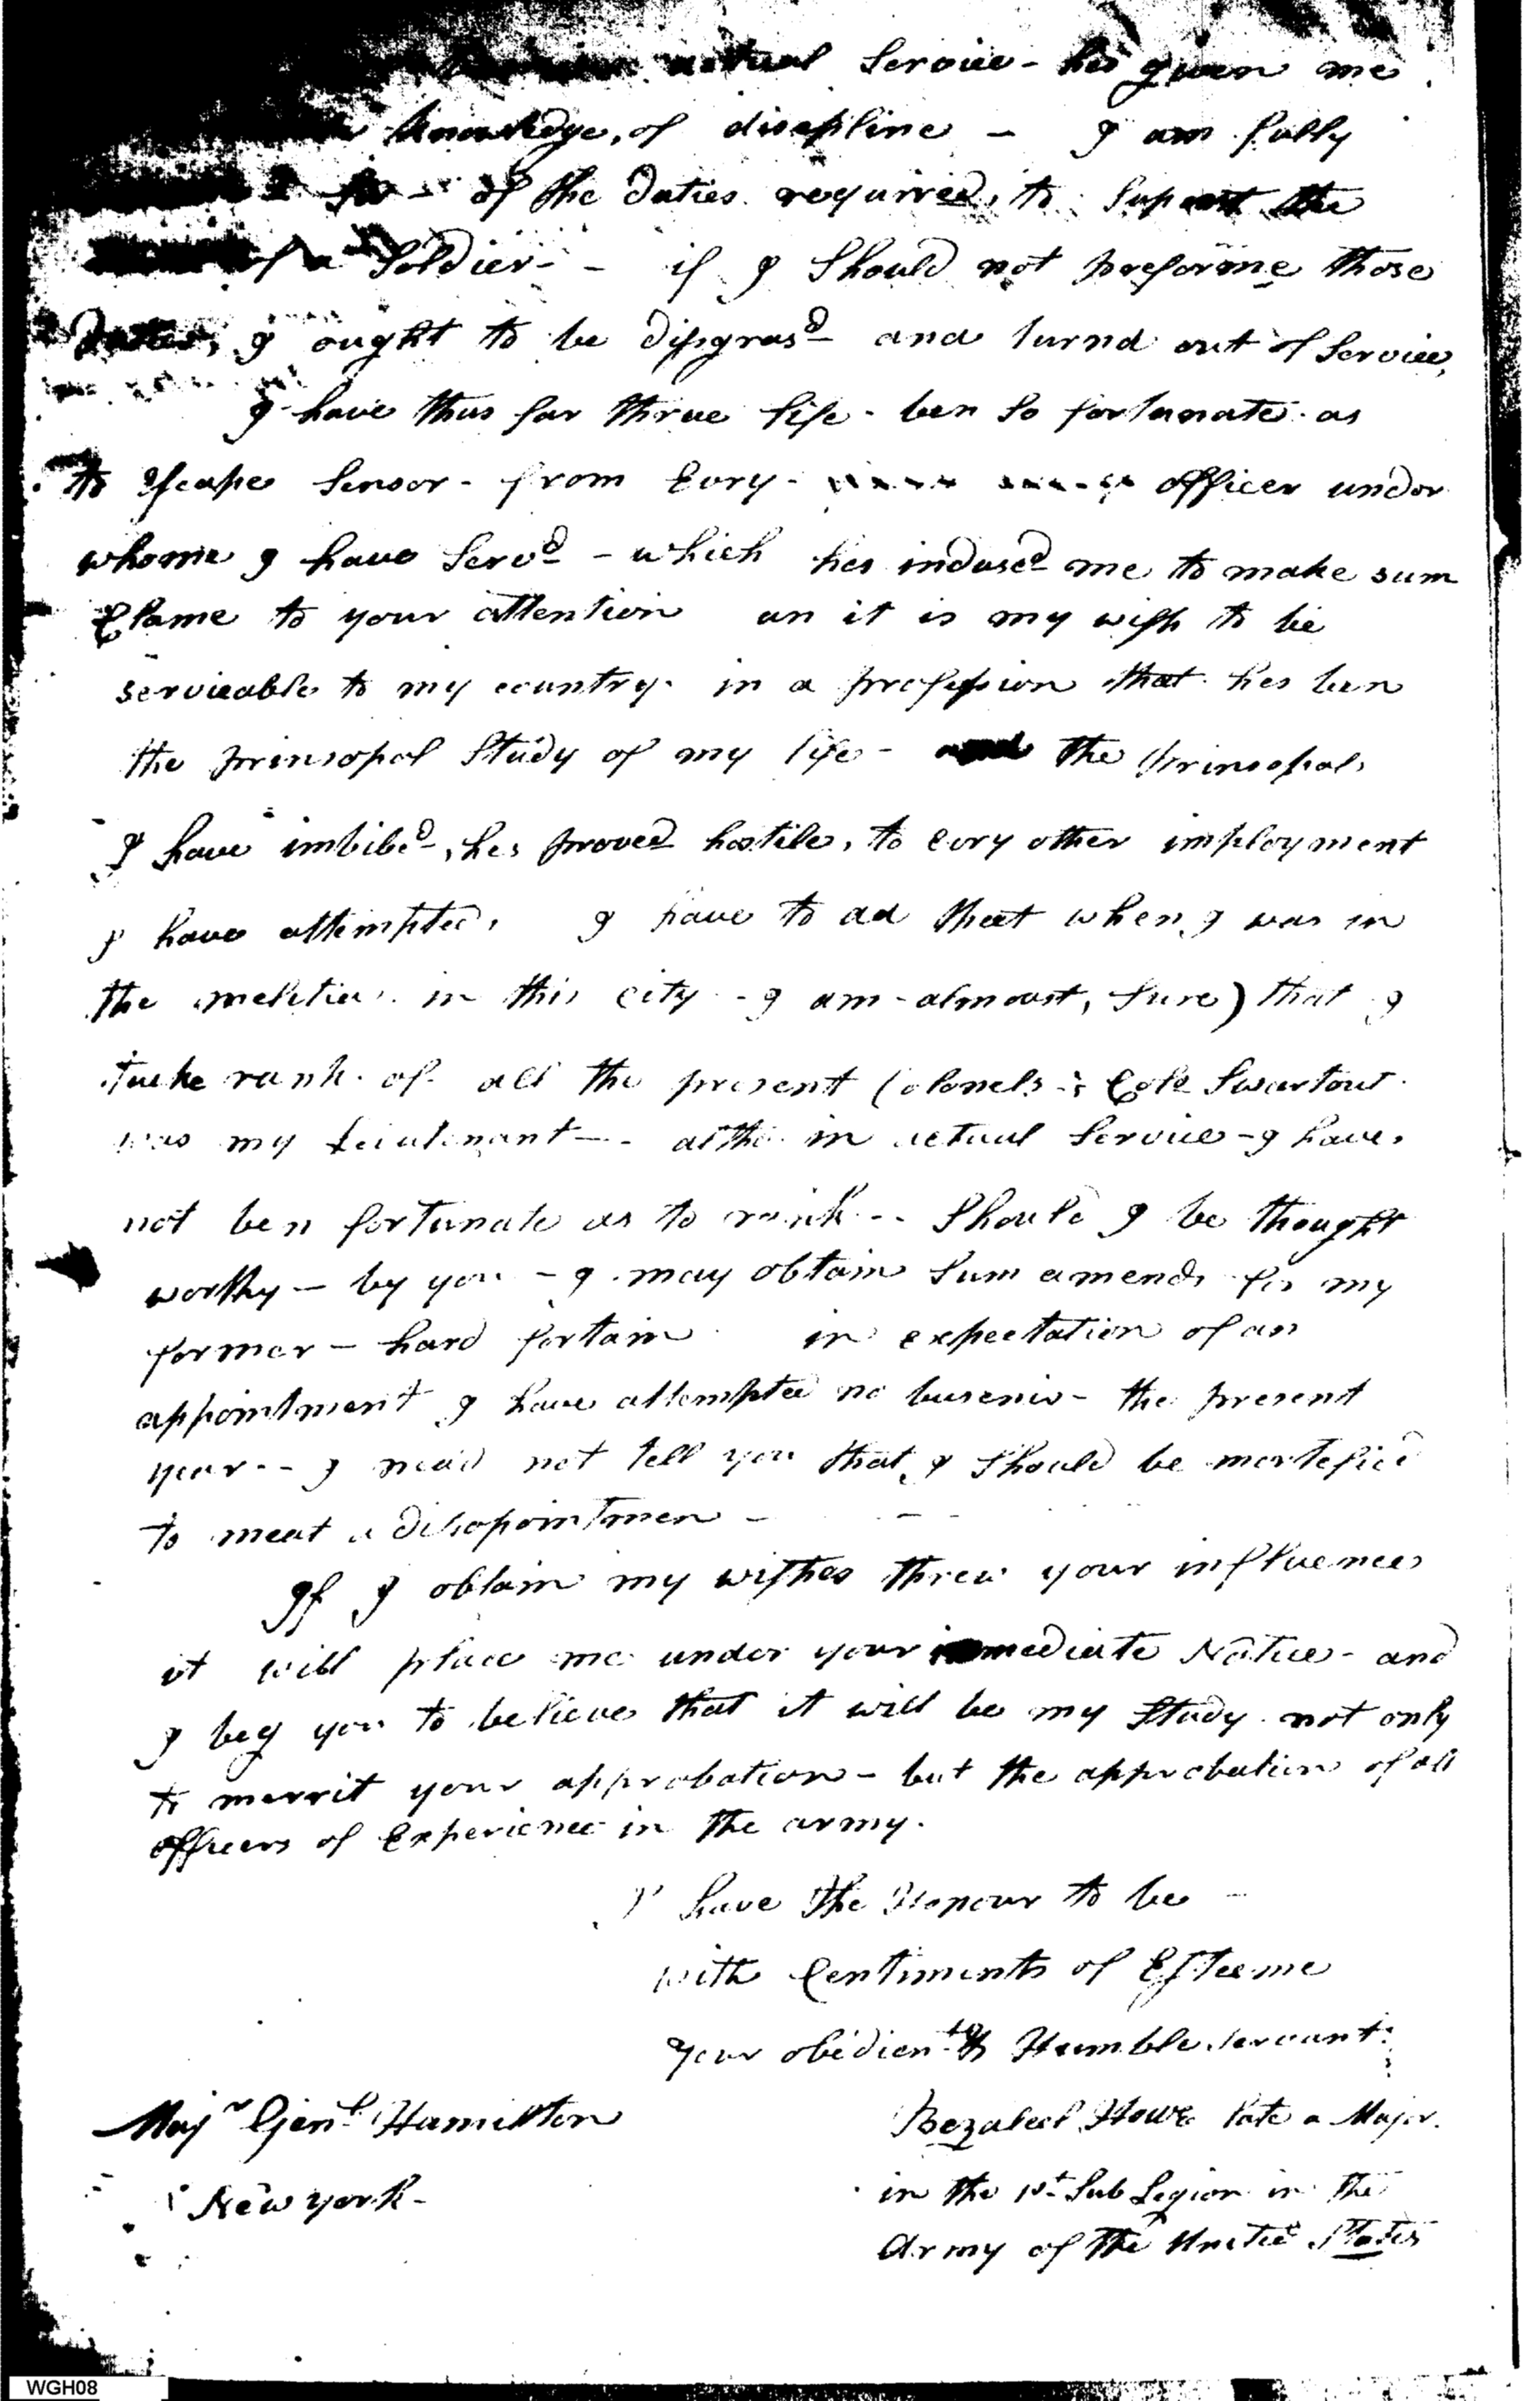 actual Service - hes given me
knowledge, of discipline - I am fully
of the duties required, to Suport the
of a Soldier - - if I Should not preforme those
Duties, I ought to be disgrasd and turnd out of Service,
I have thus far thrue life - ben So fortunate as
to Escape Sensor - from Evry - officer under
whome I have Servd - which hes indused me to make sum
Clame to your attention an it is my wish to be
serviceable to my country. in a profession that hes ben
the prinsopal Study of my life - and the prinsopals
I have imbibed, hes proved hostile, to evry other imployment
I have attempted, I have to ad that when I was in
the meletia. in this city - I am - almoast, Sure) that I
tuke rank of all the present Colonels - ; Coll Swartout
was my Leiutenant - - altho in actual Service - I have,
not ben fortunate as to rank - - Should I be thought
worthy - by you - I may obtain Sum amends for my
former - hard fortain in expectation of an
appointment I have attempted no busenis - the present
year - - I nead not tell you that I Should be mortefied
to meat a disopointmen -
If I obtain my wishes threw your influence
it will place me under your immediate Notice - and
I beg you to believe that it will be my Study not only
to merrit your approbation - but the approbation of all
officers of Experience in the army.
I have the Honour to be -
with Centiments of Esteeme
your obedient & Humble Servant
Majr Genl Hamilton
Bezaleel Howe late a Major
New york -
in the 1st Sub Legion in the
Army of the United States
WGH08